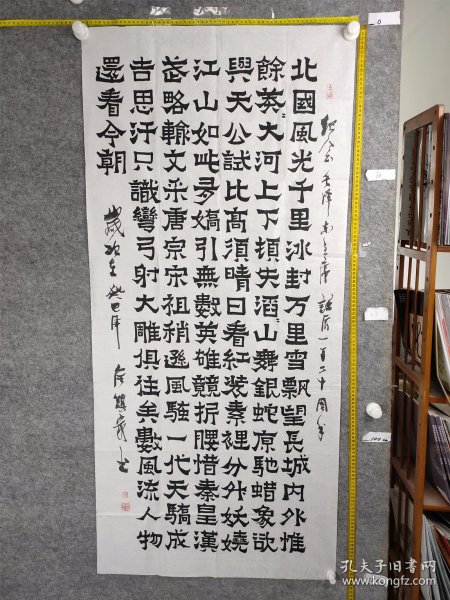 纪念毛泽东主席誕辰一百二十周年
北國風光千里冰封万里雪飘望長城内外惟
餘莽大河上下頓失滔山舞銀蛇原馳蜡象欲
與天公試比高須晴日看紅装素裡分外妖嬈
江山如此多嬌引無數英雄競折腰惜秦皇漢
武略輸文采唐宗宋祖稍遜風騷一代天驕成
吉思汗只識彎弓射大雕俱往矣數風流人物
還看今朝
歲次在癸巳年
0
100
孔夫子旧书网
www.kongfz.com